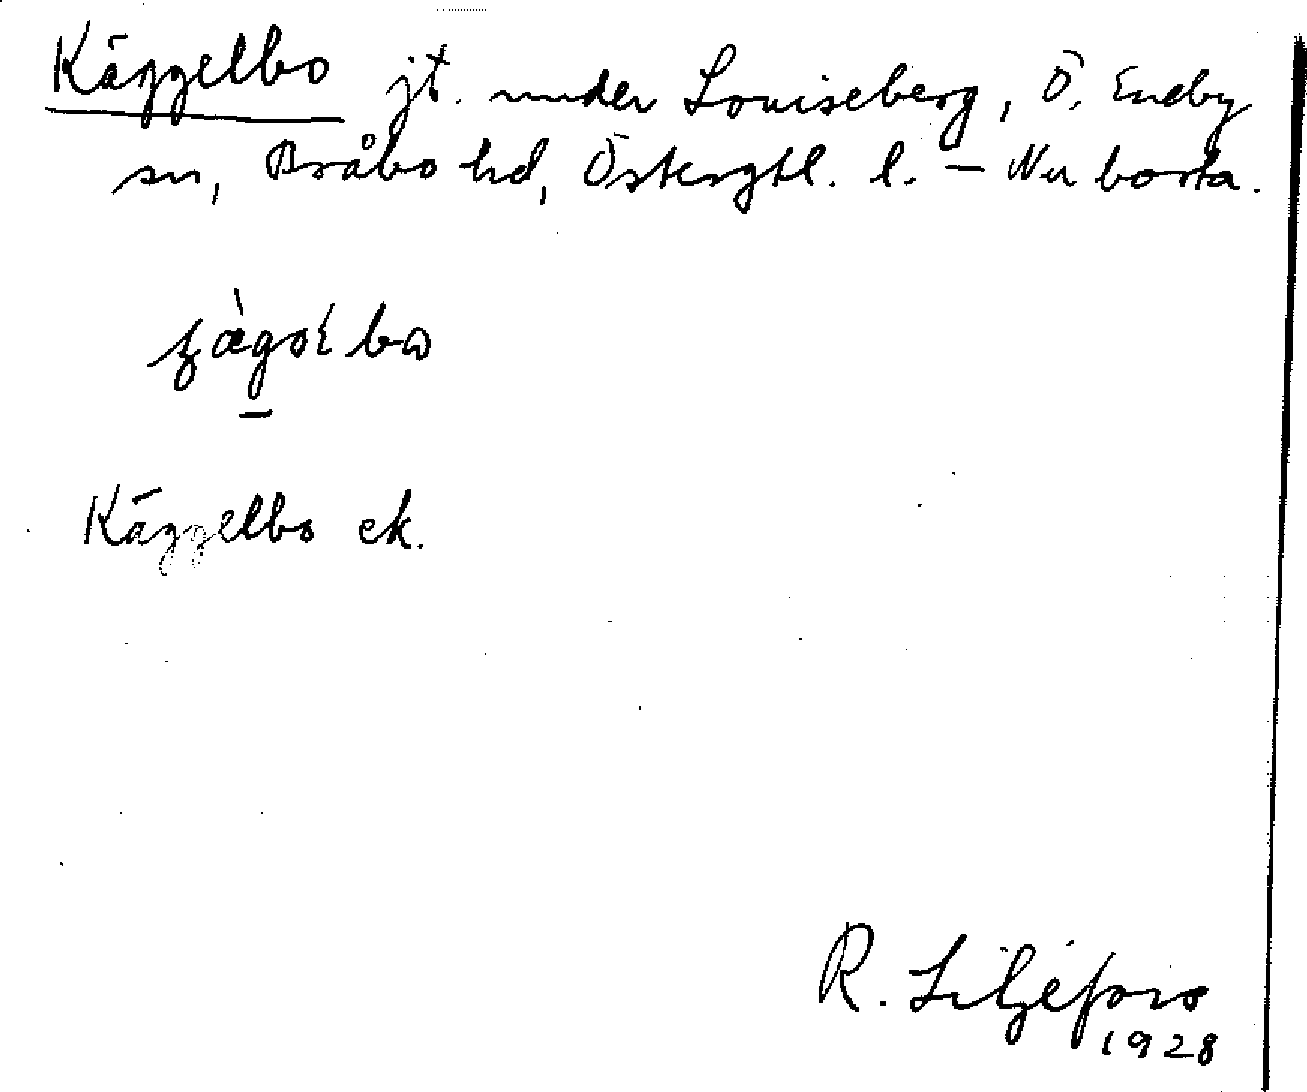 Käggelbo jt. under Louiseberg, Ö. Eneby
sn, Bråbo hd, Östergtl. l. – Nu borta.
Käggelbo ek.
R. Liljefors
1928